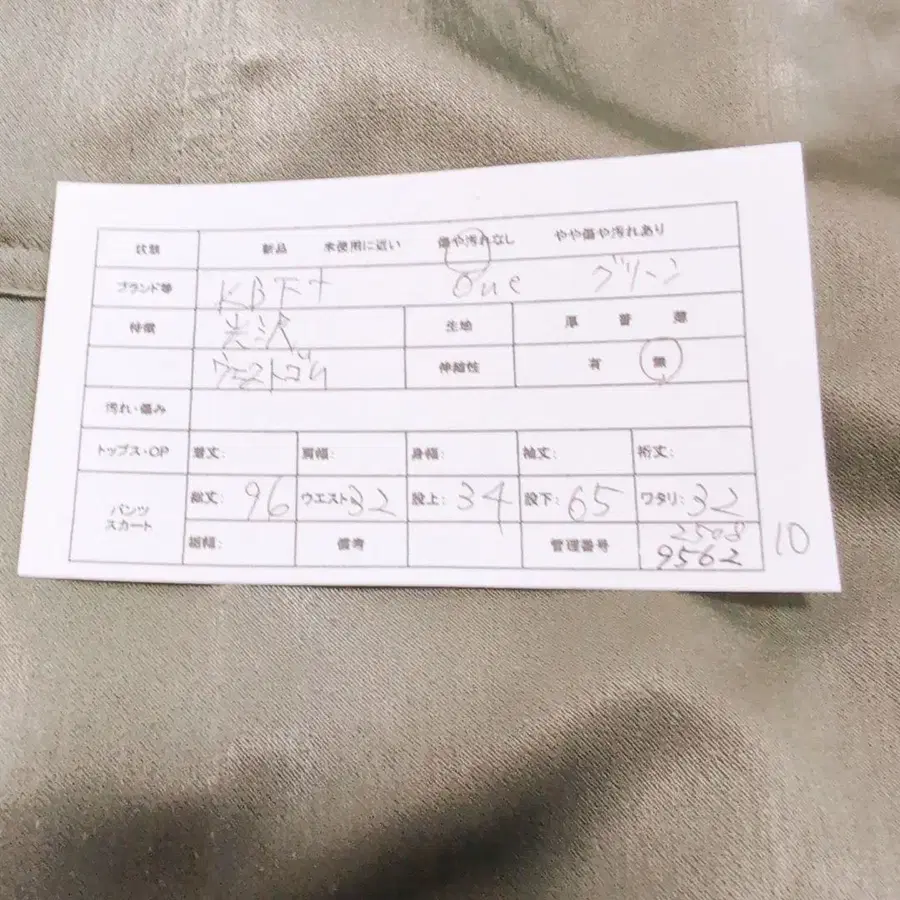 状態 新品 未使用に近い 傷や汚れなし やや傷や汚れあり
ブランド等 KBF+ One グリーン
特徴 光沢 生地 厚 普 薄
ウエストゴム 伸縮性 有 無
汚れ・傷み
トップス・OP 着丈: 肩幅: 身幅: 袖丈: 裄丈:
パンツ
スカート
総丈: 96 ウエスト: 32 股上: 34 股下: 65 ワタリ: 32
裾幅: 備考 管理番号 2508
9562
10